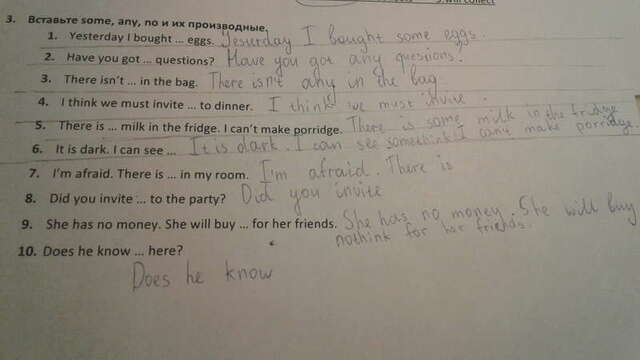 3. Вставьте some, any, no и их производные.
1. Yesterday I bought ... eggs. Yesterday I bought some eggs.
2. Have you got ... questions? Have you got any questions?
3. There isn't ... in the bag. There isn't any in the bag
4. I think we must invite ... to dinner. I think we must invite .
5. There is ... milk in the fridge. I can't make porridge. There is some milk in the fridge
6. It is dark. I can see ... It is dark. I can see somethink I can't make porridge
7. I'm afraid. There is ... in my room. I'm afraid. There is
8. Did you invite ... to the party? Did you invite
9. She has no money. She will buy ... for her friends. She has no money. She will buy
nothink for her friends.
10. Does he know ... here?
Does he know